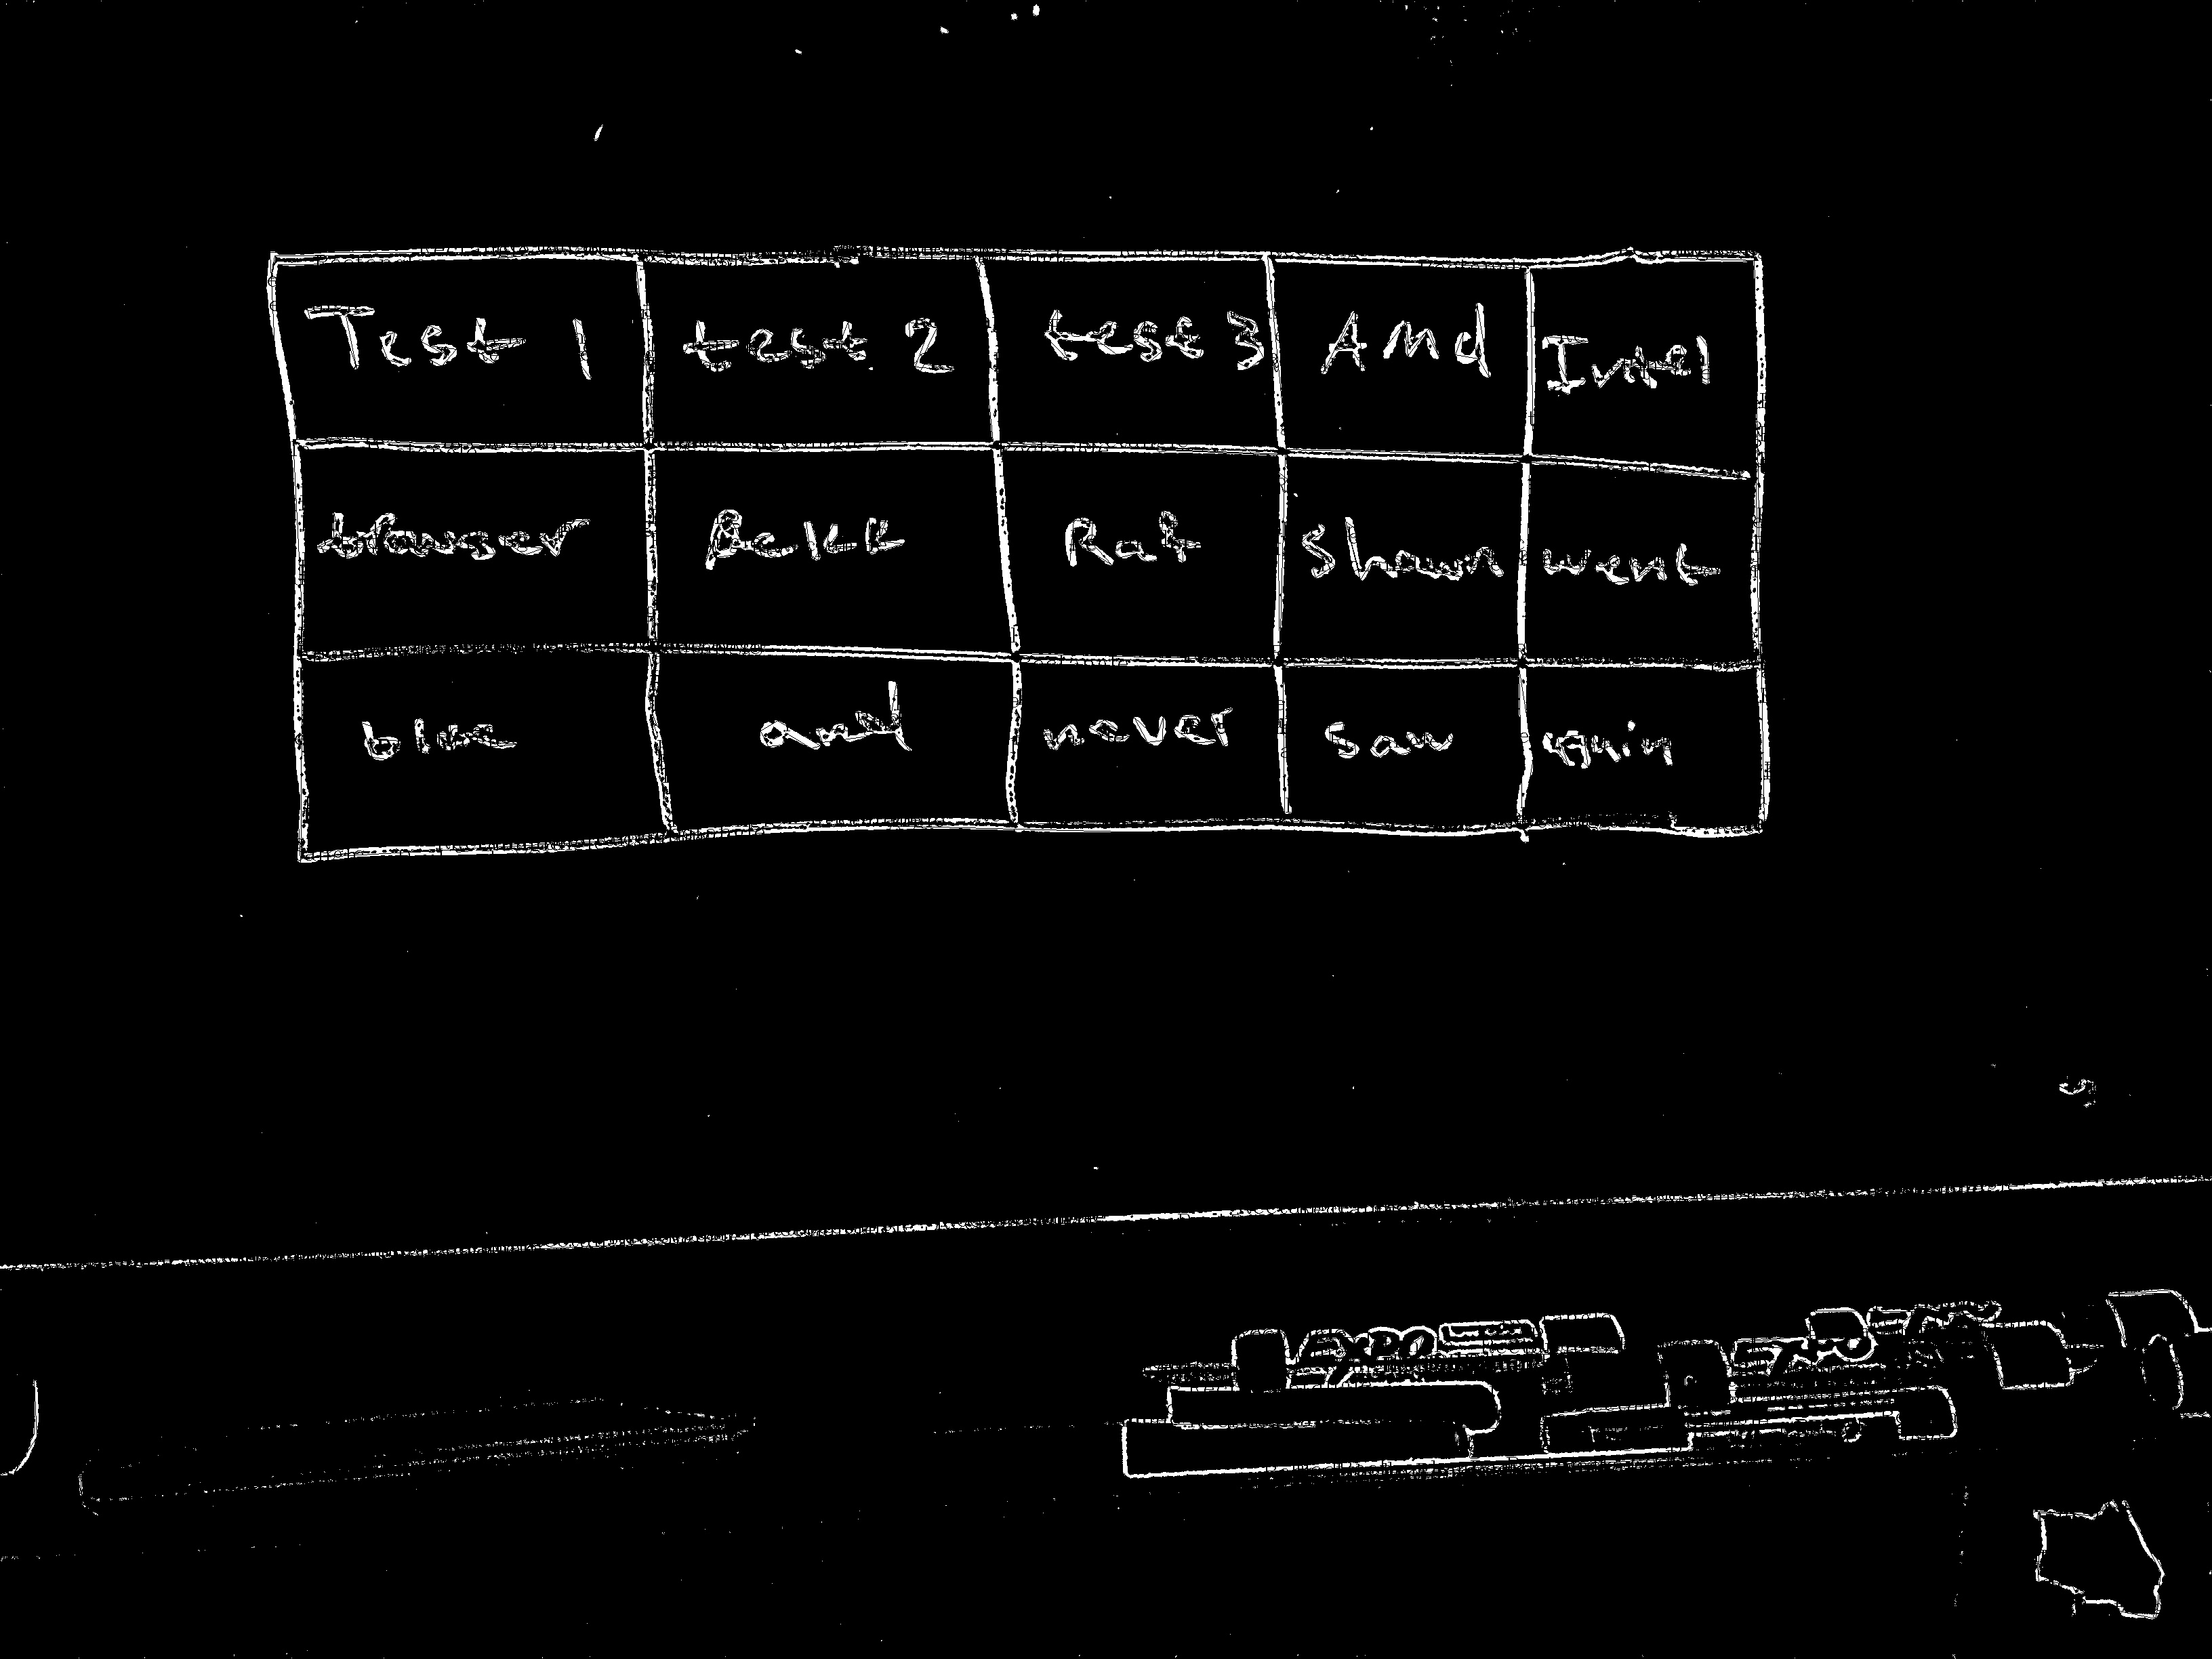 Test 1 test 2 test 3 AMd Intel
browser Rat Shawn went
blue and never saw again
EXPO
EXPO